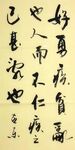 好勇疾貧亂
也人而不仁疾之
已甚亂也